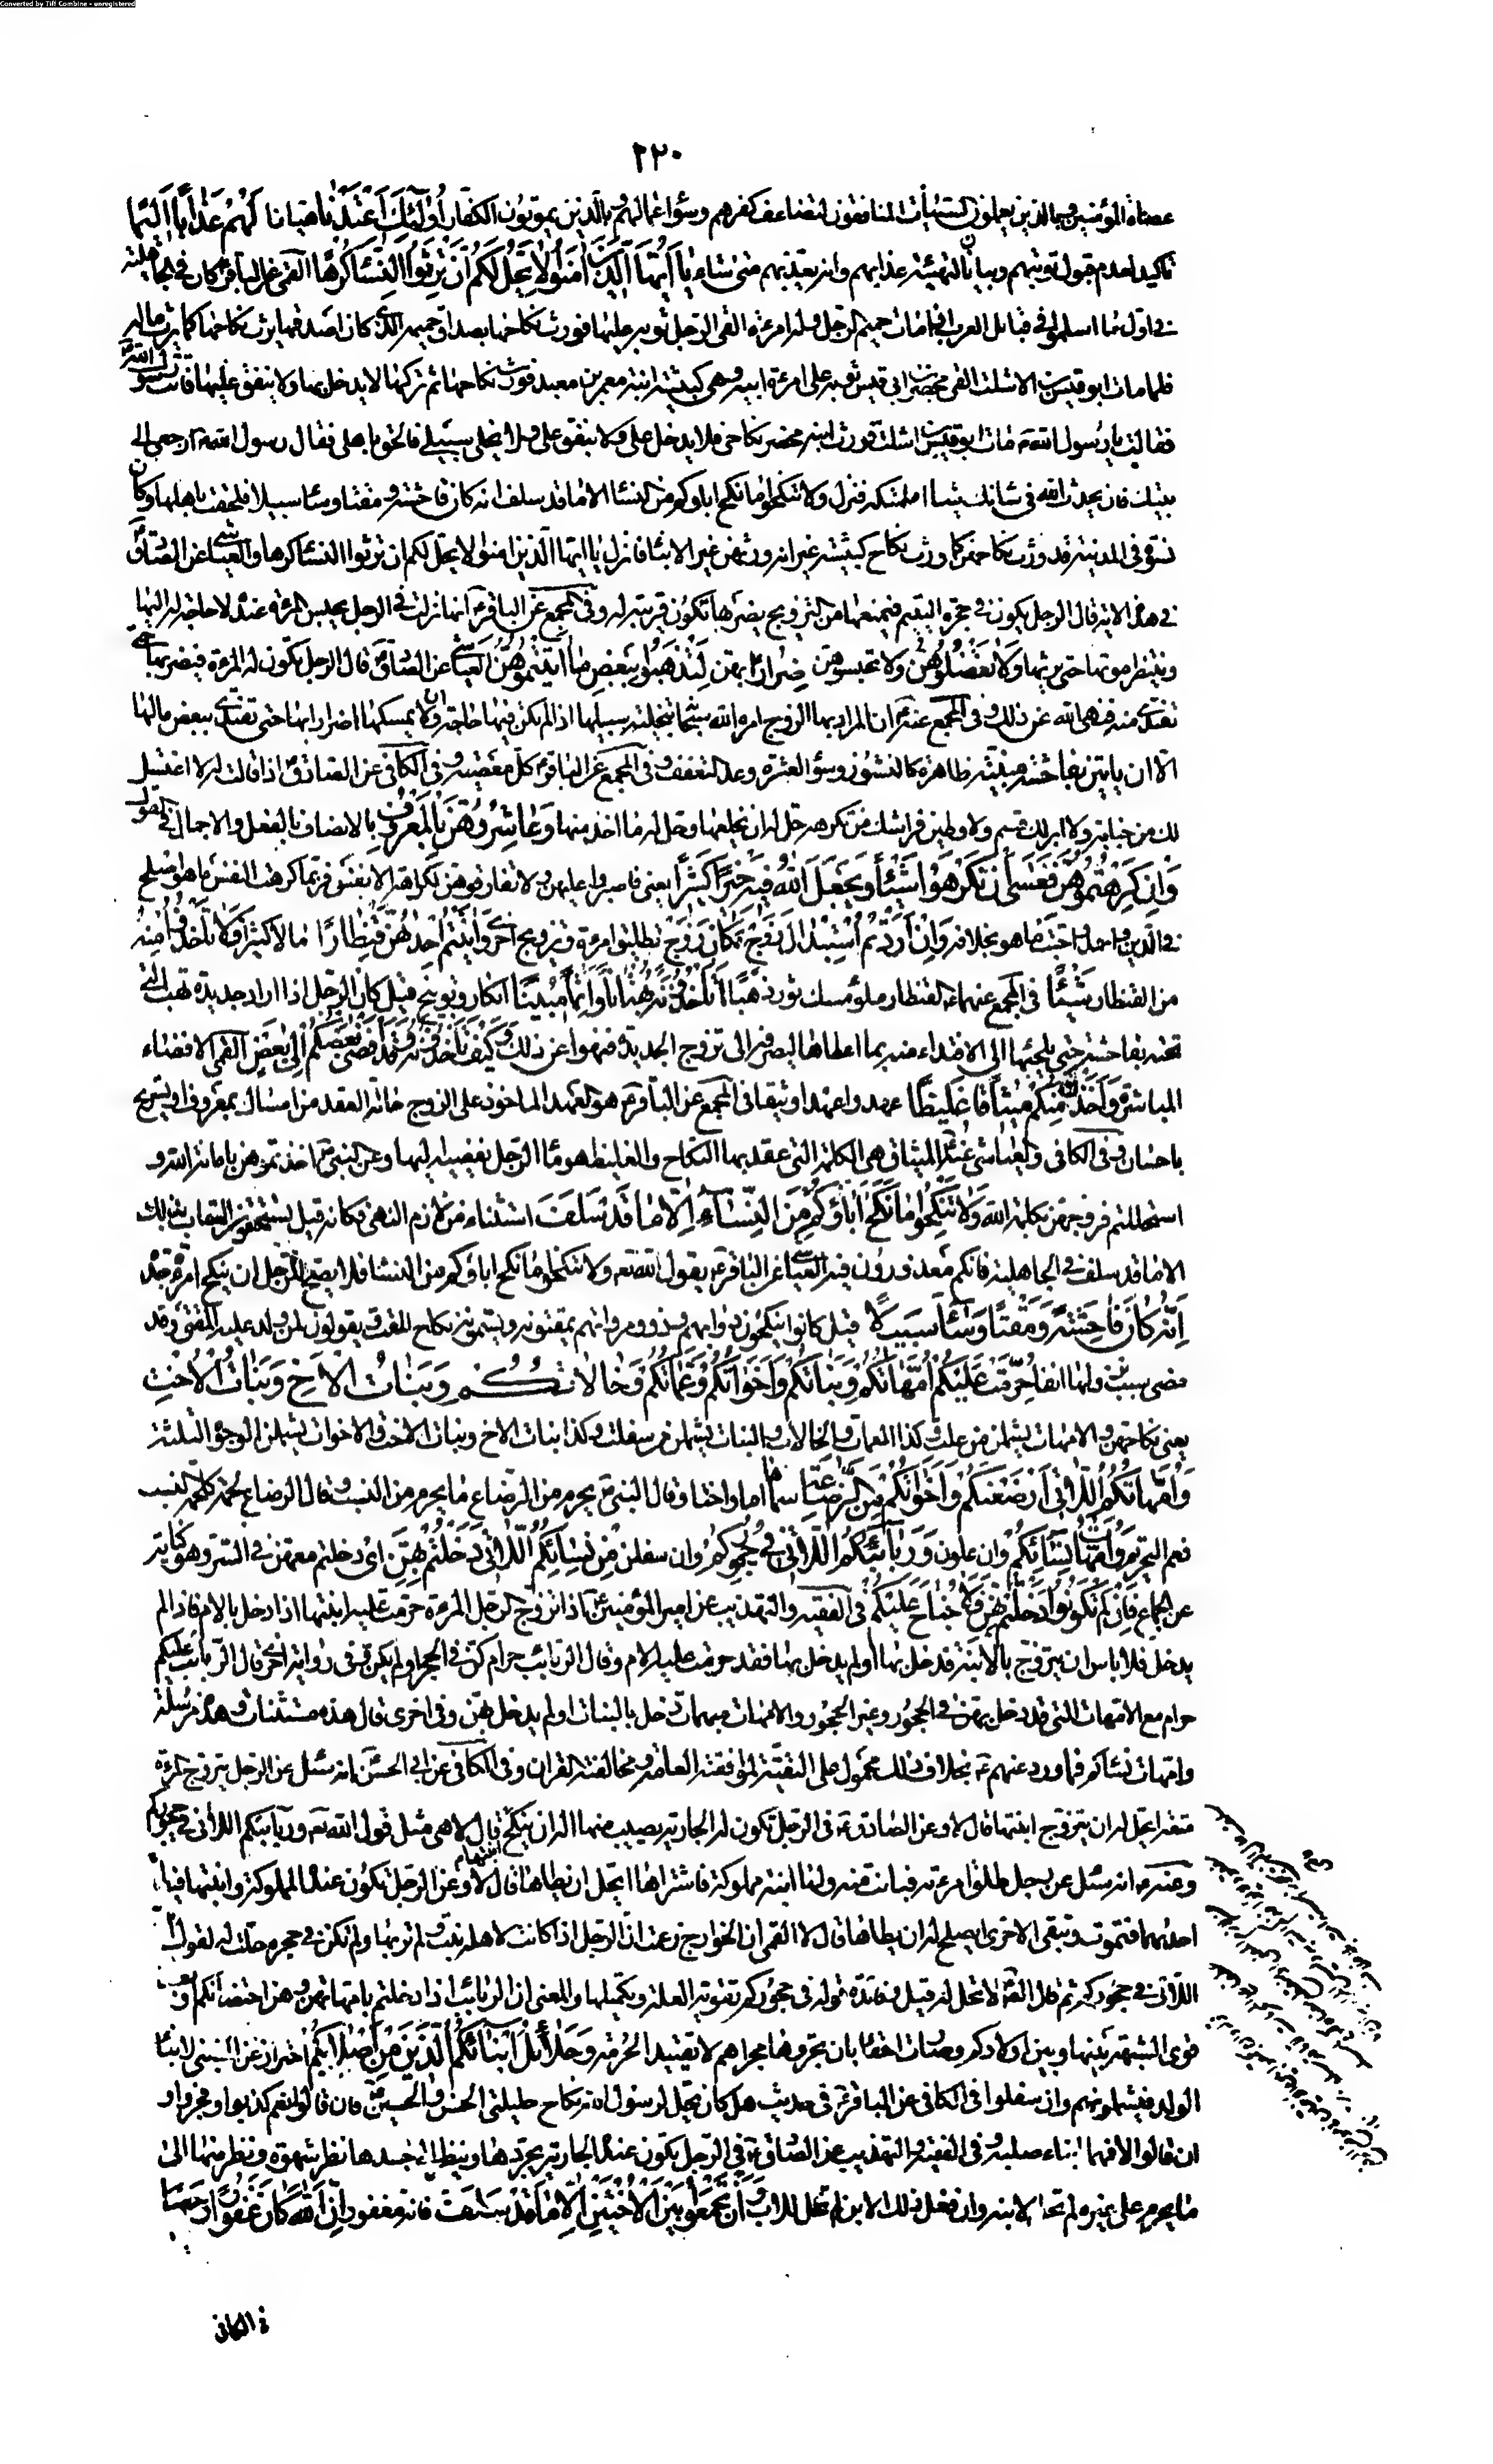 Converted by Tiff Combine - unregistered
٢٢٠
عصاة المؤمنين وبالذين يعملون السيئات المنافقون لتضاعف كفرهم وسوء اعمالهم وبالذين يموتون الكفار اولئك اعتدنا هيانا لهم عذابا اليما
تاكيد لعدم قبول توبتهم وبيان لتهيئة عذابهم وانه يعذبهم متى شاء يا ايها الذين امنوا لا يحل لكم ان ترثوا النساء كرها القمي عن الباقر كان في الجاهلية
في اول ما اسلموا في قبائل العرب اذا مات حميم الرجل وله امرءة القى الرجل ثوبه عليها فورث نكاحها بصداق حميمه الذي كان اصدقها يرث نكاحها كما يرث ماله
فلما مات ابو قيس بن الاسلت القى محصن بن ابي قيس ثوبه على امرءة ابيه وهي كبيشة ابنة معمر بن معبد فورث نكاحها ثم تركها لا يدخل بها ولا ينفق عليها فاتت رسول الله
فقالت يا رسول الله مات ابو قيس بن اسلت فورث ابنه محصن نكاحي فلا يدخل علي ولا ينفق علي ولا يخلي سبيلي فالحق باهلي فقال رسول الله ارجعي الى
بيتك فان يحدث الله في شانك شيئا اعلمتكه فنزل ولا تنكحوا ما نكح اباؤكم من النساء الا ما قد سلف انه كان فاحشة ومقتا وساء سبيلا فلحقت باهلها وكان
نسوة في المدينة قد ورث نكاحهن كما ورث نكاح كبيشة غير انه ورثهن غير الابناء فانزل يا ايها الذين امنوا لا يحل لكم ان ترثوا النساء كرها والعياشي عن الصادق
في هذه الاية قال الرجل يكون في حجره اليتيمة فيمنعها من التزويج يضر بها تكون قريبة له وفي المجمع عن الباقر انها نزلت في الرجل يحبس المرءة عنده لا حاجة له اليها
وينتظر موتها حتى يرثها ولا تعضلوهن ولا تحبسوهن ضرارا بهن لتذهبوا ببعض ما اتيتموهن العياشي عن الصادق قال الرجل تكون له المرءة فيضربها حتى
تفتدي منه فنهى الله عن ذلك وفي المجمع عنه ان المراد بها الزوج امره الله بتخلية سبيلها اذا لم يكن فيها حاجة وان لا يمسكها اضرارا بها حتى تفتدي ببعض مالها
الا ان ياتين بفاحشة مبينة ظاهرة كالنشوز وسوء العشرة وعدم التعفف وفي المجمع عن الباقر كل معصية وفي الكافي عن الصادق اذا قالت له لا اغتسل
لك من جنابة ولا ابر لك قسم ولاوطين فراشك من تكرهه حل له ان يخلعها وحل له ما اخذ منها وعاشروهن بالمعروف بالانصاف بالفعل والاجمال في القول
وان كرهتموهن فعسى ان تكرهوا شيئا ويجعل الله فيه خيرا كثيرا يعني فاصبروا عليهن ولا تفارقوهن لكراهة الانفس فربما كرهت النفس ما هو اصلح
في الدين واحمد واحبت ما هو بخلافه وان اردتم استبدال زوج مكان زوج تطليق امرءة وتزويج اخرى واتيتم احديهن قنطارا مالا كثيرا فلا تاخذوا منه
من القنطار شيئا في المجمع عنهما القنطار ملؤ مسك ثور ذهبا اتاخذونه بهتانا واثما مبينا انكار وتوبيخ قيل كان الرجل اذا اراد جديدة بهت التي
تحته بفاحشة حتى يلجئها الى الافتداء منه بما اعطاها ليصرفه الى تزوج الجديدة فنهوا عن ذلك وكيف تاخذونه وقد افضى بعضكم الى بعض القمي الافضاء
المباشرة واخذن منكم ميثاقا غليظا عهدا وثيقا في المجمع عن الباقر هو العهد الماخوذ على الزوج حالة العقد من امساك بمعروف او تسريح
باحسان وفي الكافي والعياشي عنه الميثاق هي الكلمة التي عقد بها النكاح والغليظ هو ماء الرجل يفضيه اليها وعن النبي اخذتموهن بامانة الله و
استحللتم فروجهن بكلمة الله ولا تنكحوا ما نكح اباؤكم من النساء الا ما قد سلف استثناء من لازم النهي فكانه قيل تستحقون العقاب بذلك
الا ما قد سلف في الجاهلية فانكم معذورون فيه العياشي عن الباقر يقول الله تعالى ولا تنكحوا ما نكح اباؤكم من النساء فلا يصلح للرجل ان ينكح امرءة جده
انه كان فاحشة ومقتا وساء سبيلا قيل كانوا ينكحون روابهم وذووا مروءاتهم يمقتونه ويسمونه نكاح المقت ويقولون لمن ولد عليه المقتي وقد
مضى سبب نزولها انفا حرمت عليكم امهاتكم وبناتكم واخواتكم وعماتكم وخالاتكم وبنات الاخ وبنات الاخت
يعني نكاحهن والامهات يشملن من علت وكذا العمات والخالات والبنات يشملن من سفلت وكذا بنات الاخ وبنات الاخت والاخوات يشملن الوجوه الثلثة
وامهاتكم اللاتي ارضعنكم واخواتكم من الرضاعة سماها اما واختا وقال النبي يحرم من الرضاع ما يحرم من النسب وقال الرضاع لحمة كلحمة النسب
فعم التحريم وامهات نسائكم وان علون وربائبكم اللاتي في حجوركم وان سفلن من نسائكم اللاتي دخلتم بهن اي دخلتم معهن في الستر وهو كناية
عن الجماع فان لم تكونوا دخلتم بهن فلا جناح عليكم في الفقيه والتهذيب عن امير المؤمنين اذا تزوج الرجل المرءة حرمت عليه ابنتها اذا دخل بالام فاذا لم
يدخل فلا باس ان يتزوج بالابنة فاذا تزوج بالابنة فدخل بها او لم يدخل بها فقد حرمت عليه الام وقال الربائب حرام كن في الحجر او لم يكن وفي رواية اخرى قال الربائب عليكم
حرام مع الامهات التي قد دخل بهن في الحجور وغير الحجور والامهات مبهمات دخل بالبنات او لم يدخل بهن وفي اخرى قال هذه مستثنات وهذه مرسلة
وامهات نسائكم فما ورد عنهم بخلاف ذلك محمول على التقية لموافقة العامة ومخالفة القران وفي الكافي عن ابي الحسن انه سئل عن الرجل يتزوج المرءة
متعة ايحل له ان يتزوج ابنتها قال لا وعن الصادق في الرجل تكون له الجارية يصيب منها اله ان ينكح ابنتها قال لا هي مثل قول الله تعالى وربائبكم اللاتي في حجوركم
وعنه انه سئل عن رجل طلق امرءته فبانت منه ولها ابنة مملوكة فاشتراها ايحل ان يطاها قال لا وعن الرجل تكون عنده المملوكة وابنتها فيطا
احديهما فتموت وتبقى الاخرى ايصلح له ان يطاها قال لا القمي ان الخوارج زعمت ان الرجل اذا كانت لاهله بنت ولم يربها ولم تكن في حجره حلت له لقول الله
اللاتي في حجوركم ثم قال لا تحل له قيل وفائدة قوله في حجوركم تقوية العلة وتكميلها والمعنى ان الربائب اذا دخلتم بامهاتهن وهن في احتضانكم
قوى الشبهة بينها وبين اولادكم وصارت احقا بان تجروها مجراهم لا تقييد الحرمة وحلائل ابنائكم الذين من اصلابكم احتراز عن المتبنى لا ابناء
الولد فيشملونهم وان سفلوا في الكافي عن الباقر في حديث هل كان يحل لرسول الله نكاح حليلتي الحسن والحسين فان قالوا نعم كذبوا وفجروا و
ان قالوا لا فهما ابناء صلبه وفي الفقيه والتهذيب عن الصادق في الرجل يكون عنده الجارية يجردها وينظر الى جسدها نظر شهوة ونظر منها الى
ما يحرم على غيره لم تحل لابنه وان فعل ذلك الابن لم تحل للاب وان تجمعوا بين الاختين الا ما قد سلف فانه مغفور ان الله كان غفورا رحيما
في الكافي